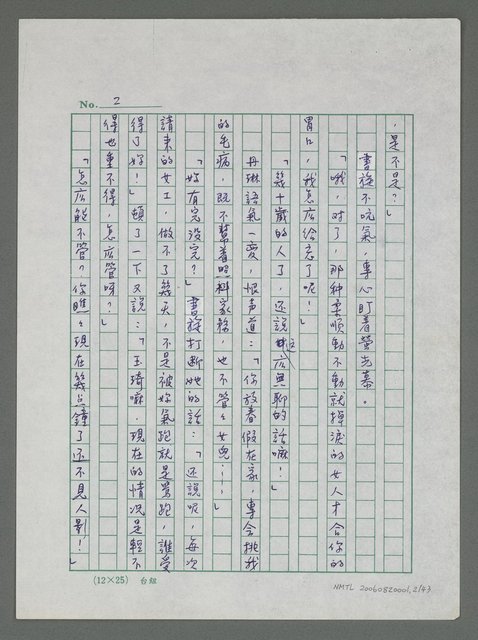 No. 2
，是不是？」
書旋不吭氣，專心盯着螢光幕。
「哦，对了，那种柔順動不動就掉淚的女人才合你的
胃口，我怎広給忘了呢！」
「幾十歲的人了，还說这広無聊的話嘛！」
丹琳語氣一变，恨声道：「你放春假在家，專会挑我
的毛病，既不幫着照料家務，也不管女兒……」
「妳有完沒完？」書旋打断她的話：「还說呢，每次
請來的女工，做不了幾天，不是被妳氣跑就是罵跑，誰受
得了妳！」頓了一下又說：「玉琦嘛，現在的情况是輕不
得也重不得，怎広管呀？」
「怎広能不管？你瞧瞧現在幾点鐘了还不見人影！」
(12×25) 台組
NMTL 20060820001,2/43